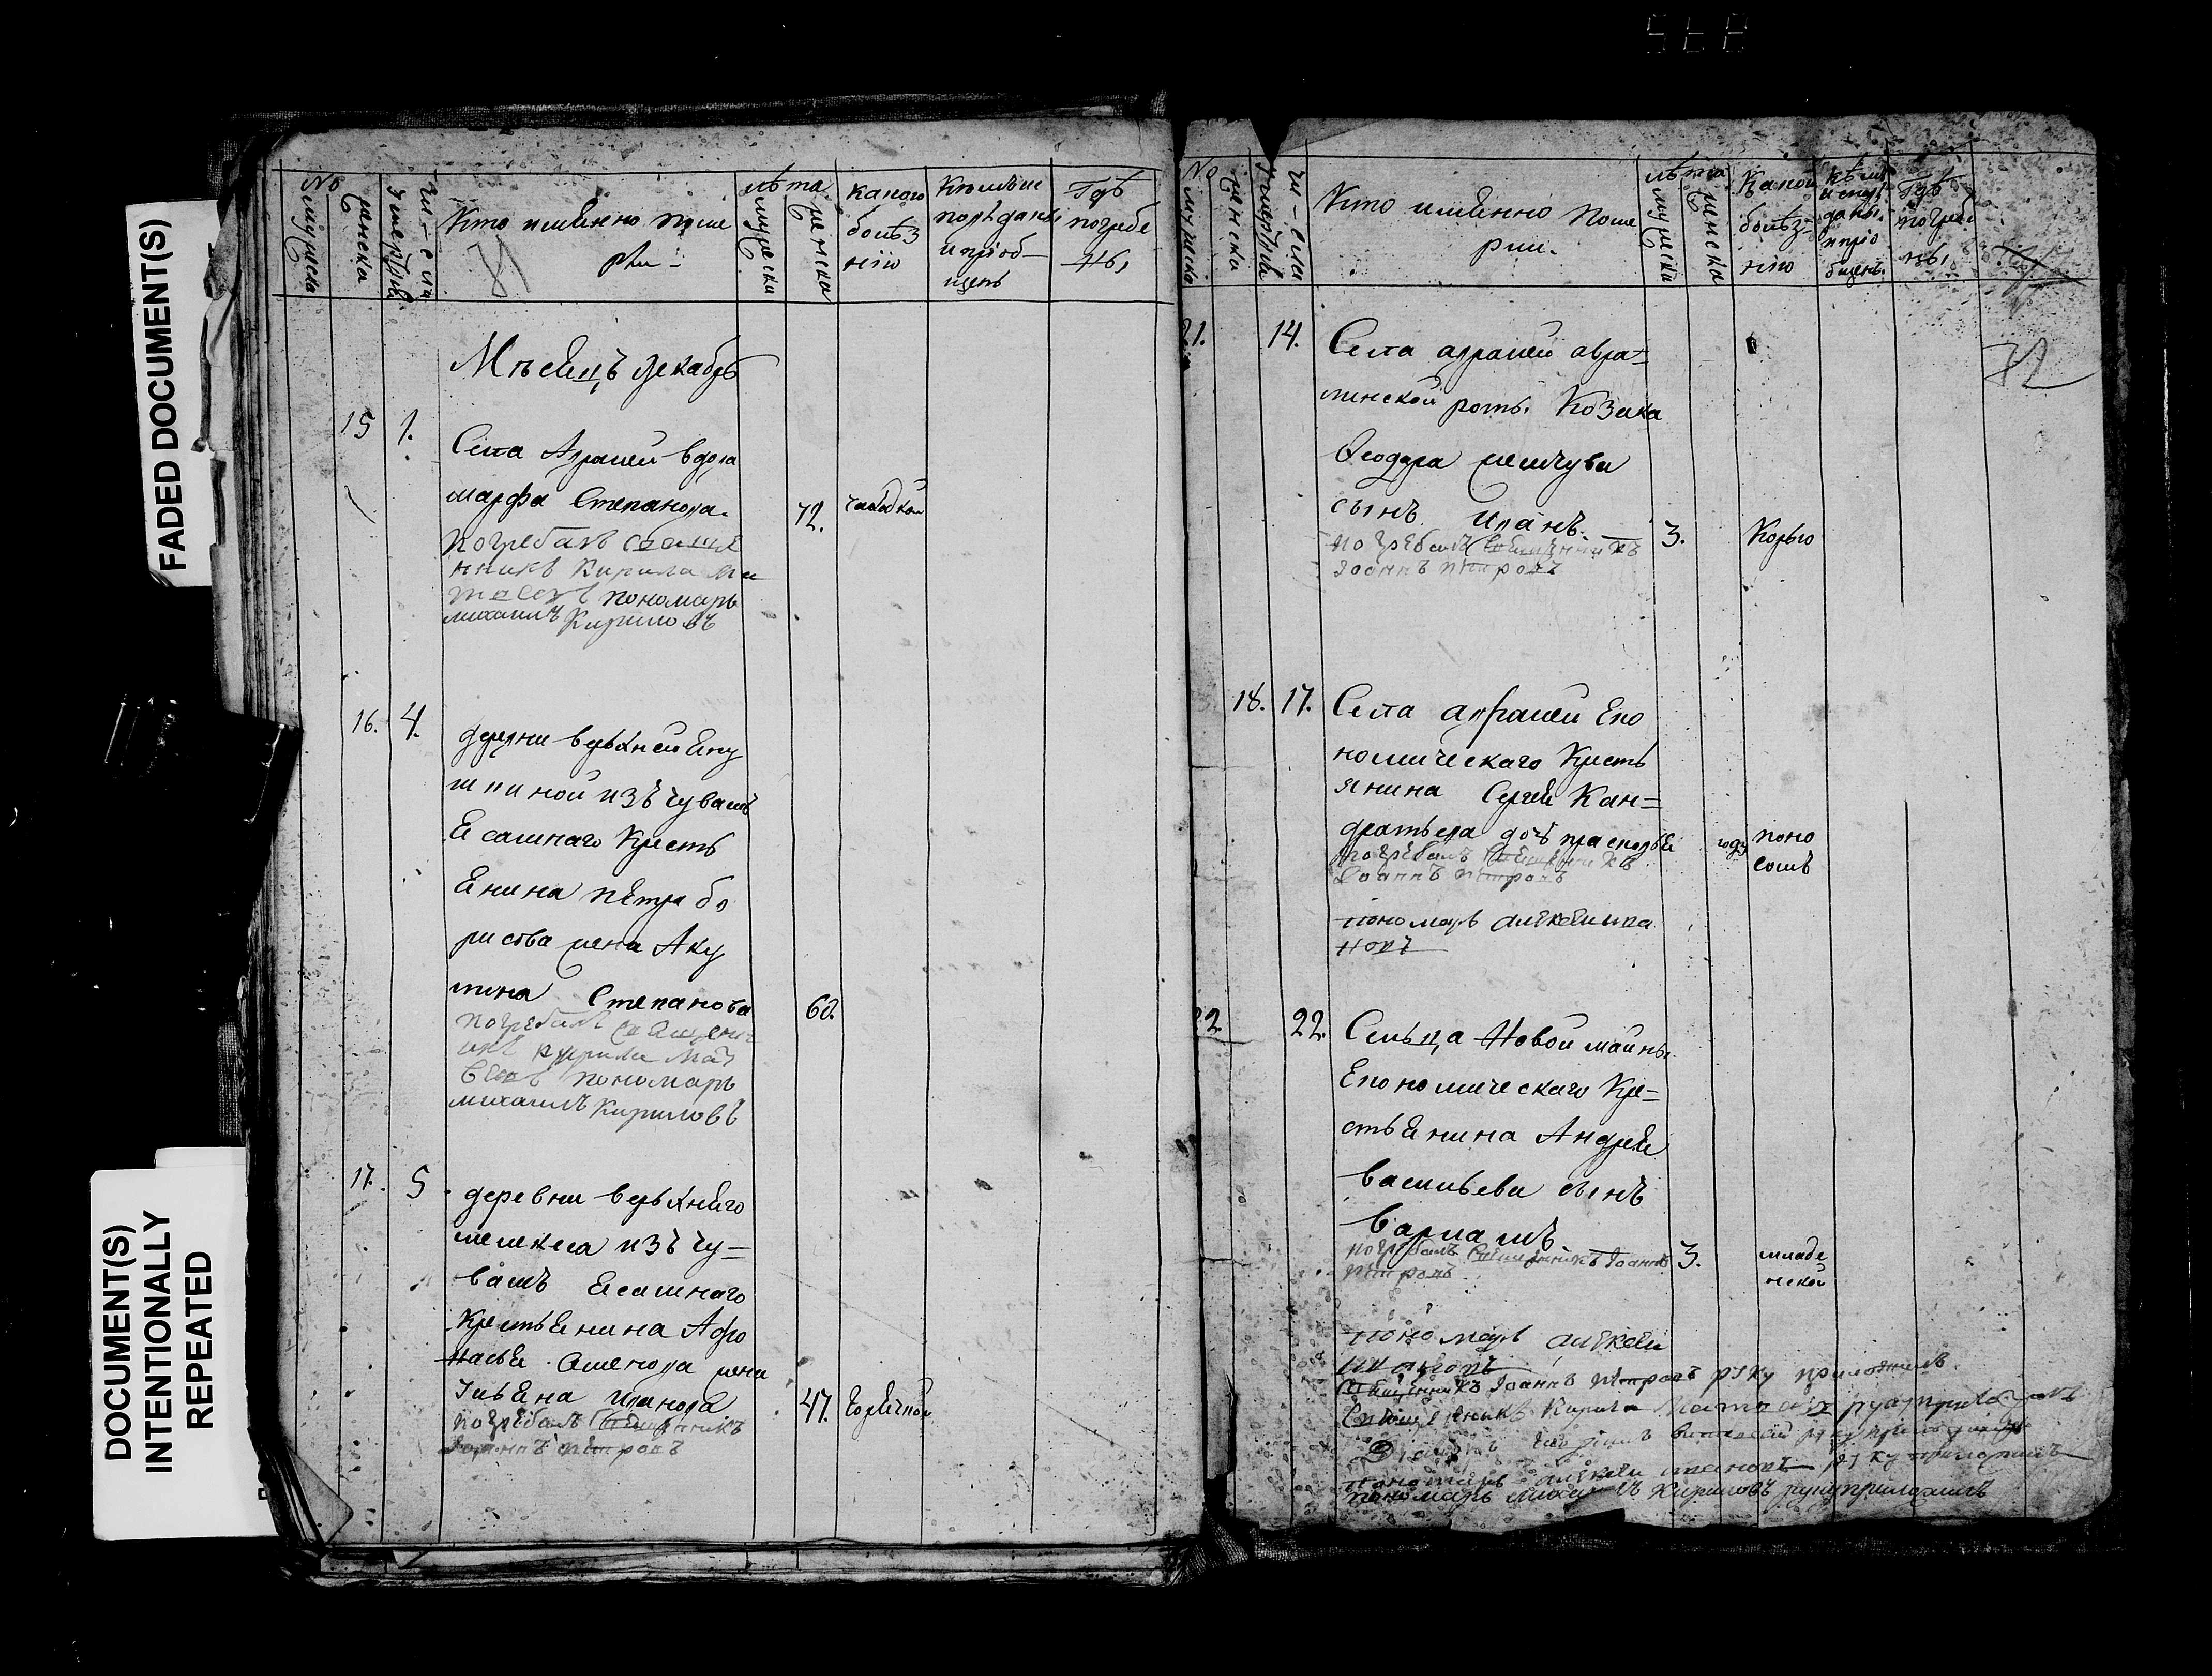 FADED DOCUMENT(S)
DOCUMENT(S)
INTENTIONALLY
REPEATED
№
мужеска
женска
чи-сла
умертвій
Кто именно поме
рли-
лѣта
мужеска
женска
какого
болѣз
нію
Кѣмъ
исповѣданы
и пріоб-
щены
Гдѣ
погребе
ны,
Мѣсецъ декабрь
15
1.
Села Аврамеи вдова
марфа Степанова.
72.
чахоткой
погребалъ Свяще
нникъ Кирила Ма
твеевъ пономарь
михаилъ Кириловъ
16.
4.
деревни верхней Ену
шкиной изъ чувашъ
Есашнаго Кресть
енина Петра бо
рисова жена Аку
лина Степанова
60.
погребалъ Священ
икъ Кирила Мат
веевъ пономарь
михаилъ Кириловъ
17.
5
деревни верхнѣго
мелекеса изъ чу-
вашъ Есашнаго
Крестьенина Афо
насье Семенова жена
Ульена Иванова
47.
Горячкой
погребалъ Священникъ
Іоаннъ Петровъ
№
мужеска
женска
чи-сла
умертвій
Кто именно поме
рли-
лѣта
мужеска
женска
Какой
болѣз-
нію
Кѣмъ
испові
даны
и пріо
бщены
Гдѣ
погребе
ны,
21.
14.
Села аврамеи авра=
минской роты Козака
Феодора
сынъ Иванъ.
3.
Корью
погребалъ Священникъ
Іоаннъ Петровъ
18.
17.
Села аврамеи Еко
номическаго Кресть
янина Сергеи Кан=
дратьева дочь прасковье
году
поно
сомъ
погребалъ Священникъ
Іоаннъ Петровъ
пономарь алексеи ива
новъ
22.
22.
Сельца Новой маины
Економическаго Кре=
стьенина Андрее
васильева сынъ
Варламъ
3.
младе
нской
погребалъ Священникъ Іоаннъ
Петровъ
пономарь алексеи
ивановъ
Священникъ Іоаннъ Петровъ руку приложилъ
Священникъ Кирила Матвеевъ руку приложилъ
руку приложилъ
пономарь алексеи ивановъ руку приложилъ
пономарь михаилъ Кириловъ руку приложилъ